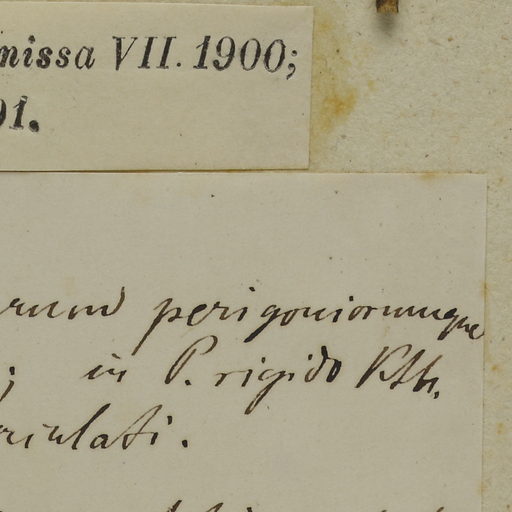 missa VII. 1900;
91.
rum perigoniorumque
; in P. rigido Kth.
riculati.